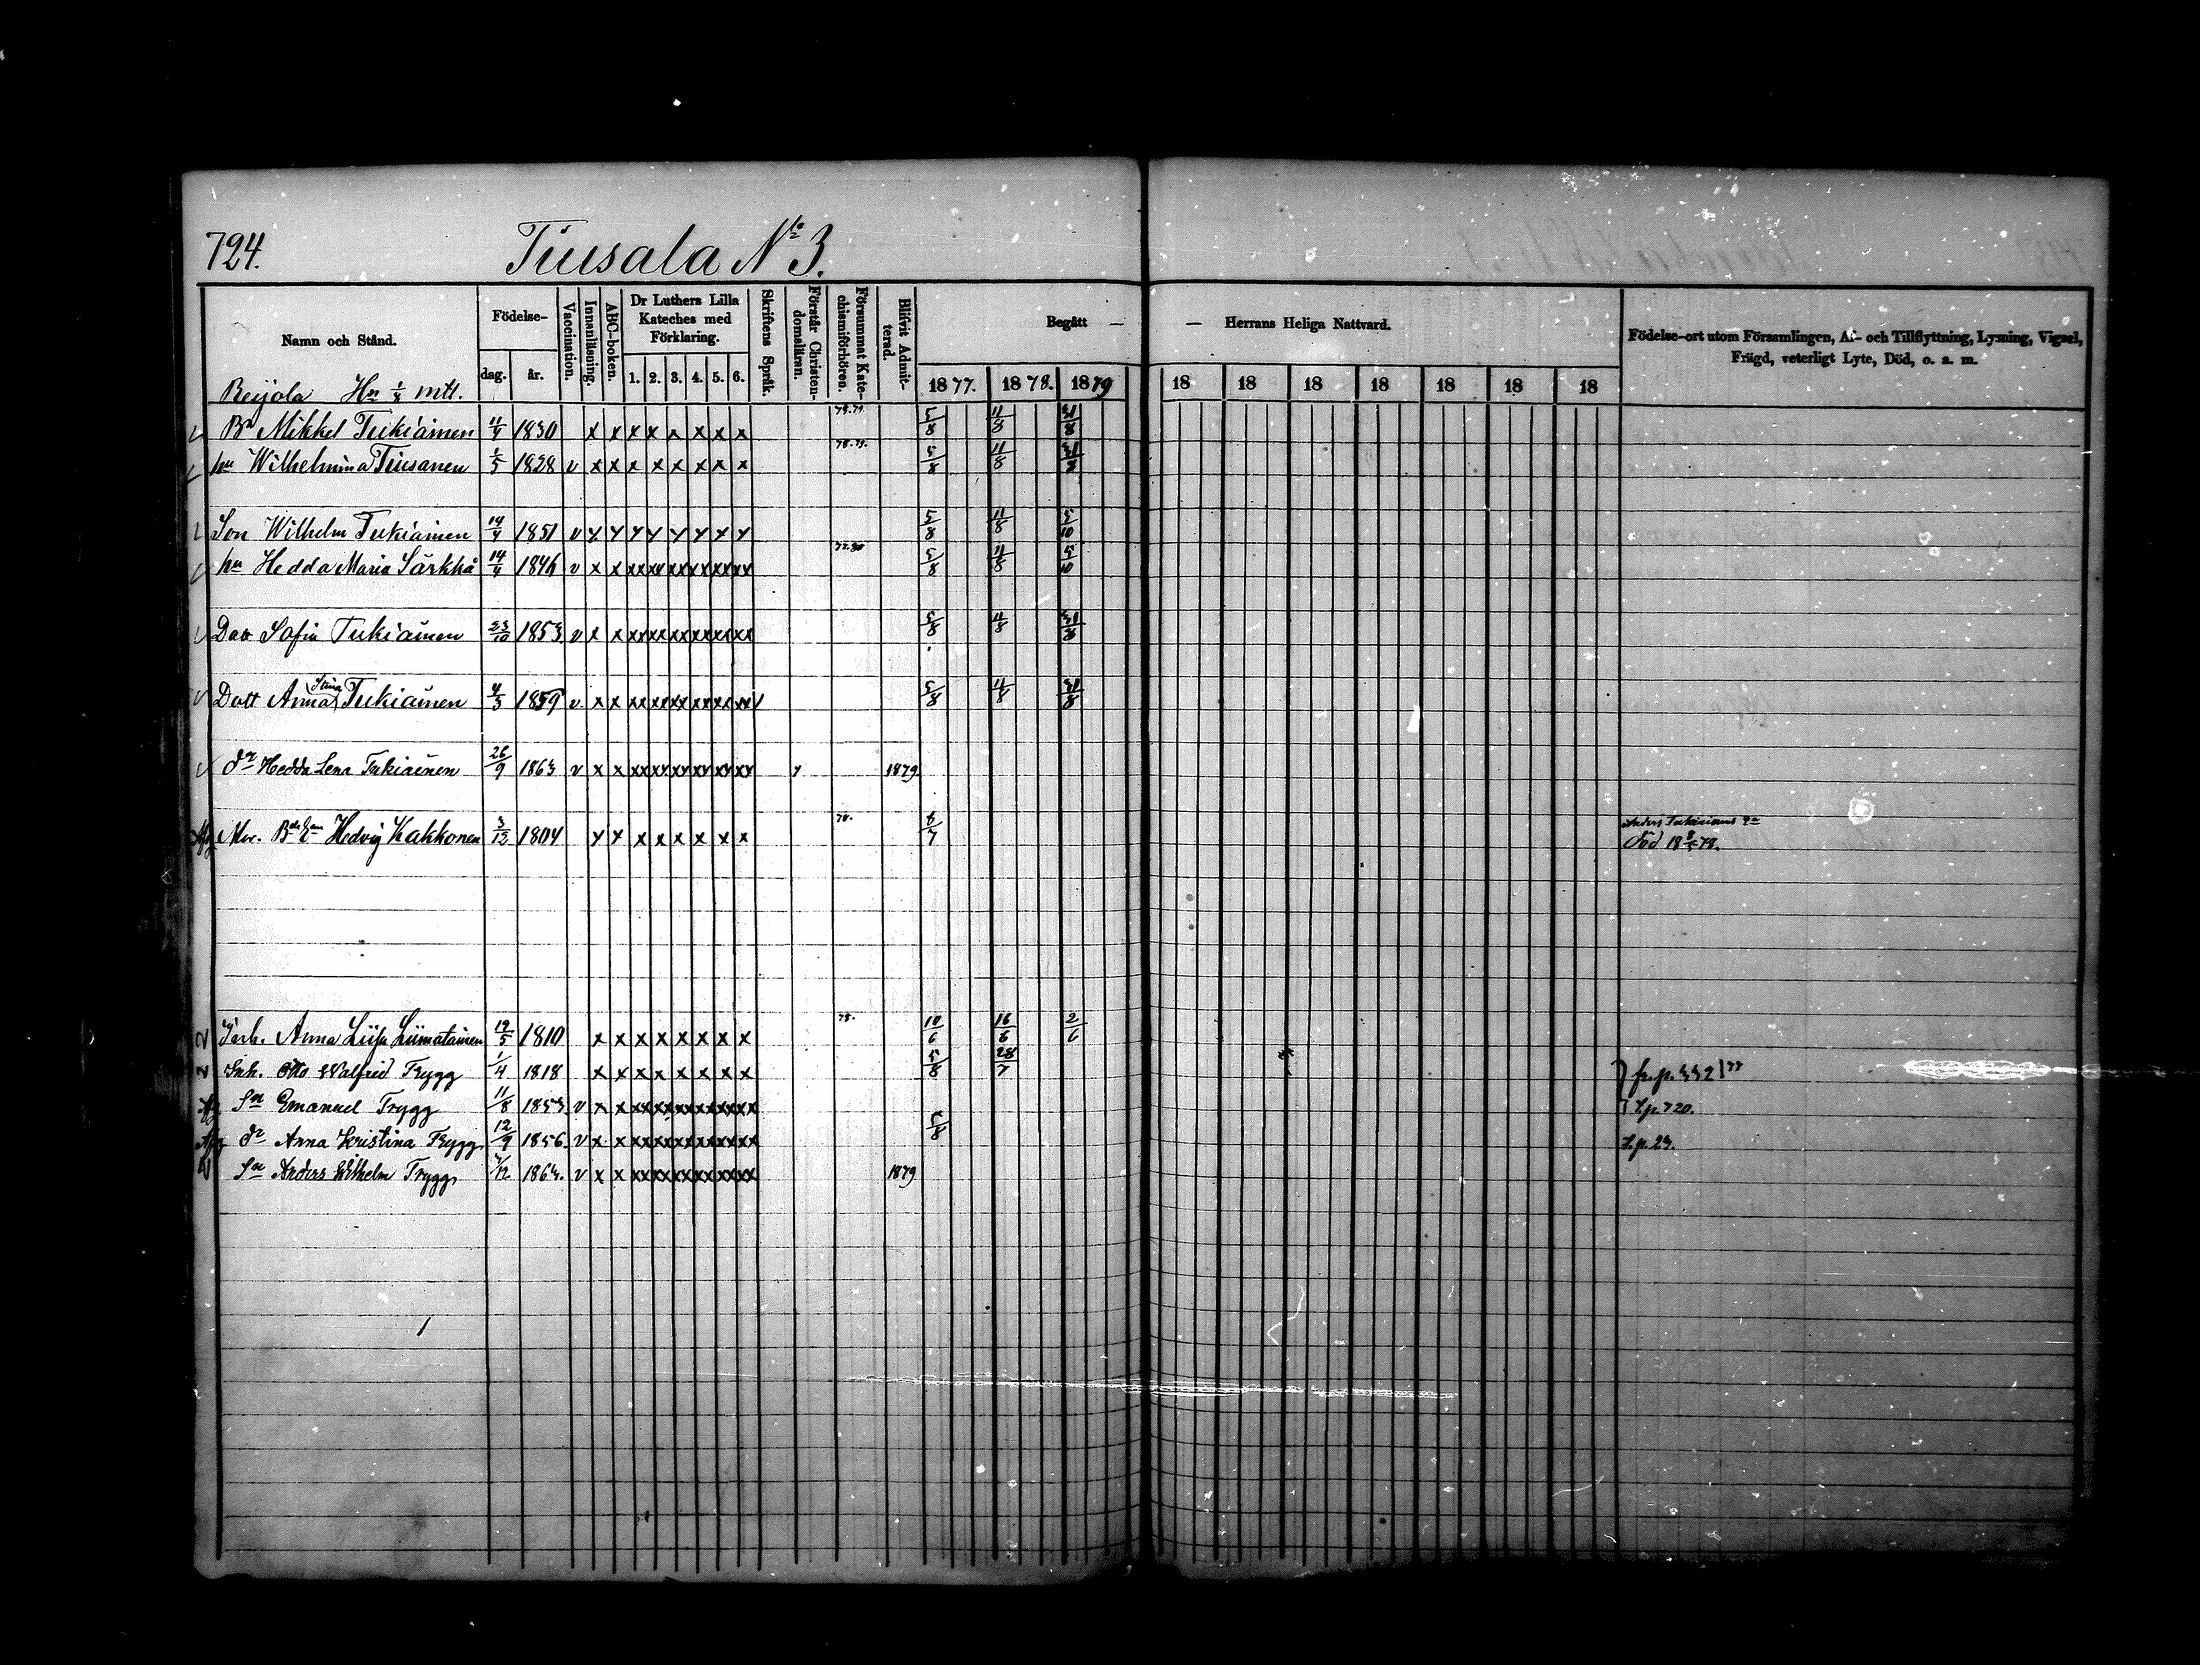 724.
Tiusala No 3.
Namn och Stånd.
Födelse-
dag.
år.
Vaccination.
Innanläsning.
ABC-boken.
Dr Luthers Lilla
Kateches med
Förklaring.
1. 2. 3. 4. 5. 6.
Skriftens Språk.
Förstår Christen-
domsläran.
Försummat Kate-
chismiförhören.
Blifvit Admit-
terad.
Begått — — Herrans Heliga Nattvard.
1877. 1878. 1879 18 18 18 18 18 18 18
Födelse-ort utom Församlingen, Af- och Tillflyttning, Lysning, Vigsel,
Frägd, veterligt Lyte, Död, o. a. m.
Reijola Hn mtl.
Bd Mikkel Tukiainen 4/4 1830 x x x x x x x x 78.79. 5/8 11/8 31/8
hu Wilhelmina Tiusanen 1/5 1828 v x x x x x x x x 78.79. 5/8 11/8 31/8
Son Wilhelm Tukiainen 14/4 1851 v x x x x x x x x 5/8 11/8 5/10
hu Hedda Maria Särkkä 14/4 1846 v x x xx xx xx xx xx xx 5/8 11/8 5/10
Dott Sofia Tukiainen 23/10 1853. v x x xx xx xx xx xx xx 5/8 11/8 31/8
Dott Anna Stina Tukiainen 4/3 1859 v. x x xx xx xx xx xx xx 5/8 11/8 31/8
dr Hedda Lena Tukiainen 26/9 1863 v x x xx xx xx xx xx xx 1879
Mor. Bde Ean Hedvig Kakkonen 3/12 1804 x x x x x x x x 78. 8/7 Anders Tukiainens
Död 18 8/5 78.
Inh. Anna Liisa Liimatainen 19/5 1810 x x x x x x x x 78. 10/6 16/6 2/6
Inh. Otto Walfrid Trygg 1/4 1818 x x x x x x x x 5/8 28/7 fr. p. 332
Sn Emanuel Trygg 11/8 1853. v x x xx xx xx xx xx xx t. p. 720.
dr Anna Kristina Trygg 12/9 1856. v x x xx xx xx xx xx xx 5/8 t. p. 23.
Sn Anders Wilhelm Trygg 1863. v x x xx xx xx xx xx xx 1879